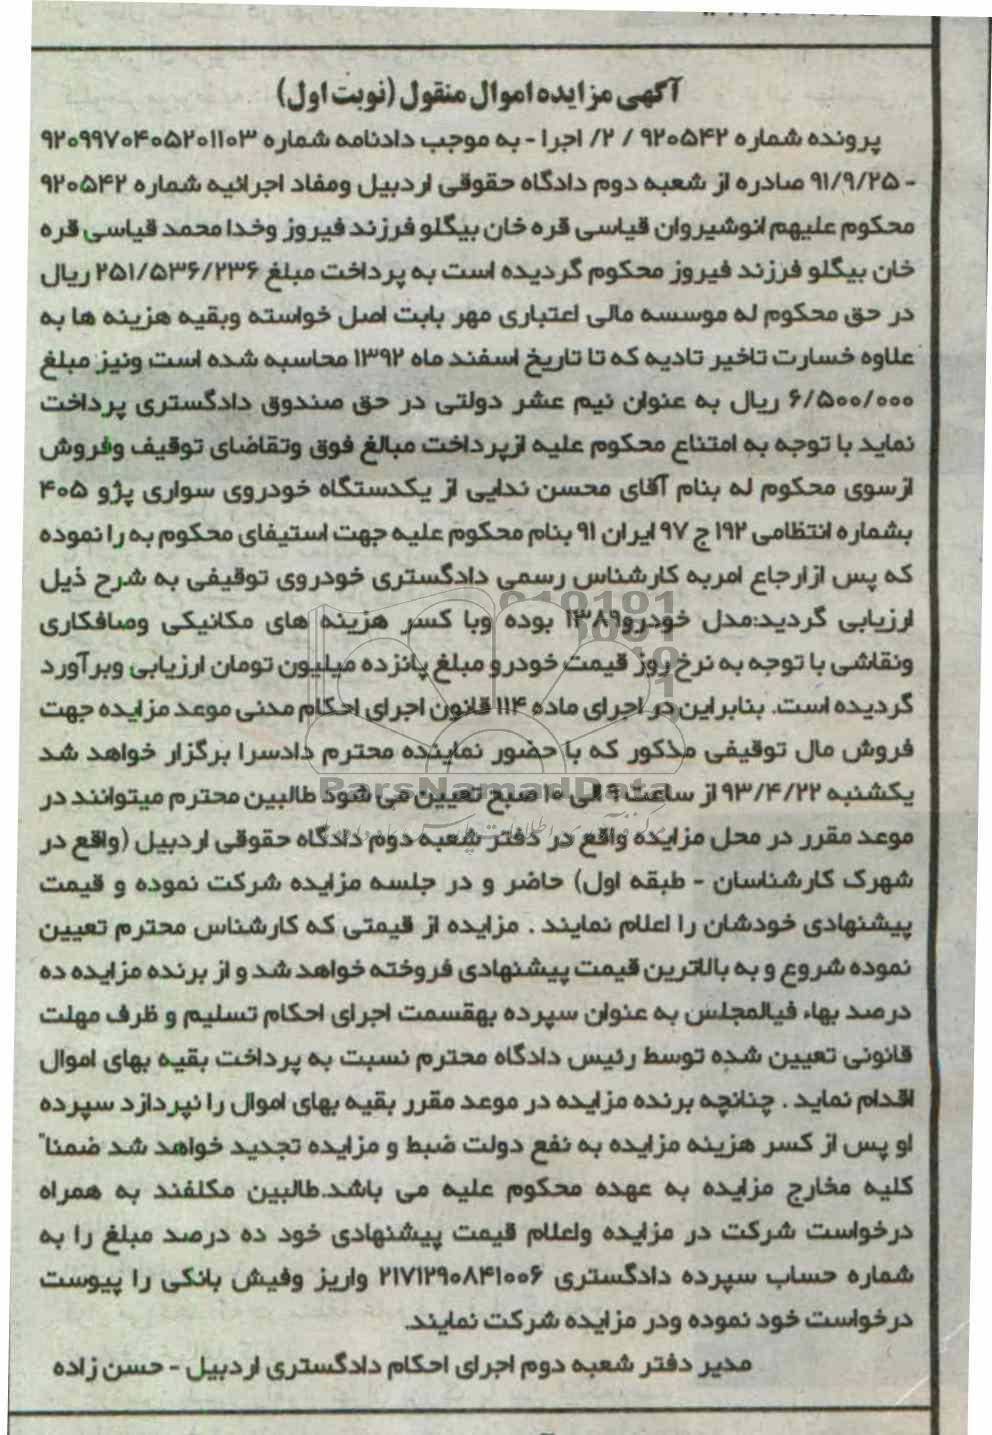 آگهی مزایده اموال منقول (نوبت اول)
پرونده شماره ۹۲۰۵۴۲ / ۲/ اجرا - به موجب دادنامه شماره ۹۲۰۹۹۷۰۴۰۵۲۰۱۱۰۳
- ۹۱/۹/۲۵ صادره از شعبه دوم دادگاه حقوقی اردبیل ومفاد اجرائیه شماره ۹۲۰۵۴۲
محکوم علیهم انوشیروان قیاسی قره خان بیگلو فرزند فیروز وخدا محمد قیاسی قره
خان بیگلو فرزند فیروز محکوم گردیده است به پرداخت مبلغ ۲۵۱/۵۳۶/۲۳۶ ریال
در حق محکوم له موسسه مالی اعتباری مهر بابت اصل خواسته وبقیه هزینه ها به
علاوه خسارت تاخیر تادیه که تا تاریخ اسفند ماه ۱۳۹۲ محاسبه شده است ونیز مبلغ
۶/۵۰۰/۰۰۰ ریال به عنوان نیم عشر دولتی در حق صندوق دادگستری پرداخت
نماید با توجه به امتناع محکوم علیه ازپرداخت مبالغ فوق وتقاضای توقیف وفروش
ازسوی محکوم له بنام آقای محسن ندایی از یکدستگاه خودروی سواری پژو ۴۰۵
بشماره انتظامی ۱۹۲ ج ۹۷ ایران ۹۱ بنام محکوم علیه جهت استیفای محکوم به را نموده
که پس ازارجاع امربه کارشناس رسمی دادگستری خودروی توقیفی به شرح ذیل
ارزیابی گردید:مدل خودرو۱۳۸۹ بوده وبا کسر هزینه های مکانیکی وصافکاری
ونقاشی با توجه به نرخ روز قیمت خودرو مبلغ پانزده میلیون تومان ارزیابی وبرآورد
گردیده است. بنابراین در اجرای ماده ۱۱۴ قانون اجرای احکام مدنی موعد مزایده جهت
فروش مال توقیفی مذکور که با حضور نماینده محترم دادسرا برگزار خواهد شد
یکشنبه ۹۳/۴/۲۲ از ساعت ۹ الی ۱۰ صبح تعیین می شود طالبین محترم میتوانند در
موعد مقرر در محل مزایده واقع در دفتر شعبه دوم دادگاه حقوقی اردبیل (واقع در
شهرک کارشناسان - طبقه اول) حاضر و در جلسه مزایده شرکت نموده و قیمت
پیشنهادی خودشان را اعلام نمایند . مزایده از قیمتی که کارشناس محترم تعیین
نموده شروع و به بالاترین قیمت پیشنهادی فروخته خواهد شد و از برنده مزایده ده
درصد بهاء فیالمجلس به عنوان سپرده بهقسمت اجرای احکام تسلیم و ظرف مهلت
قانونی تعیین شده توسط رئیس دادگاه محترم نسبت به پرداخت بقیه بهای اموال
اقدام نماید . چنانچه برنده مزایده در موعد مقرر بقیه بهای اموال را نپردازد سپرده
او پس از کسر هزینه مزایده به نفع دولت ضبط و مزایده تجدید خواهد شد ضمناً
کلیه مخارج مزایده به عهده محکوم علیه می باشد.طالبین مکلفند به همراه
درخواست شرکت در مزایده واعلام قیمت پیشنهادی خود ده درصد مبلغ را به
شماره حساب سپرده دادگستری ۲۱۷۱۲۹۰۸۴۱۰۰۶ واریز وفیش بانکی را پیوست
درخواست خود نموده ودر مزایده شرکت نمایند.
مدیر دفتر شعبه دوم اجرای احکام دادگستری اردبیل - حسن زاده
ParsNamadData